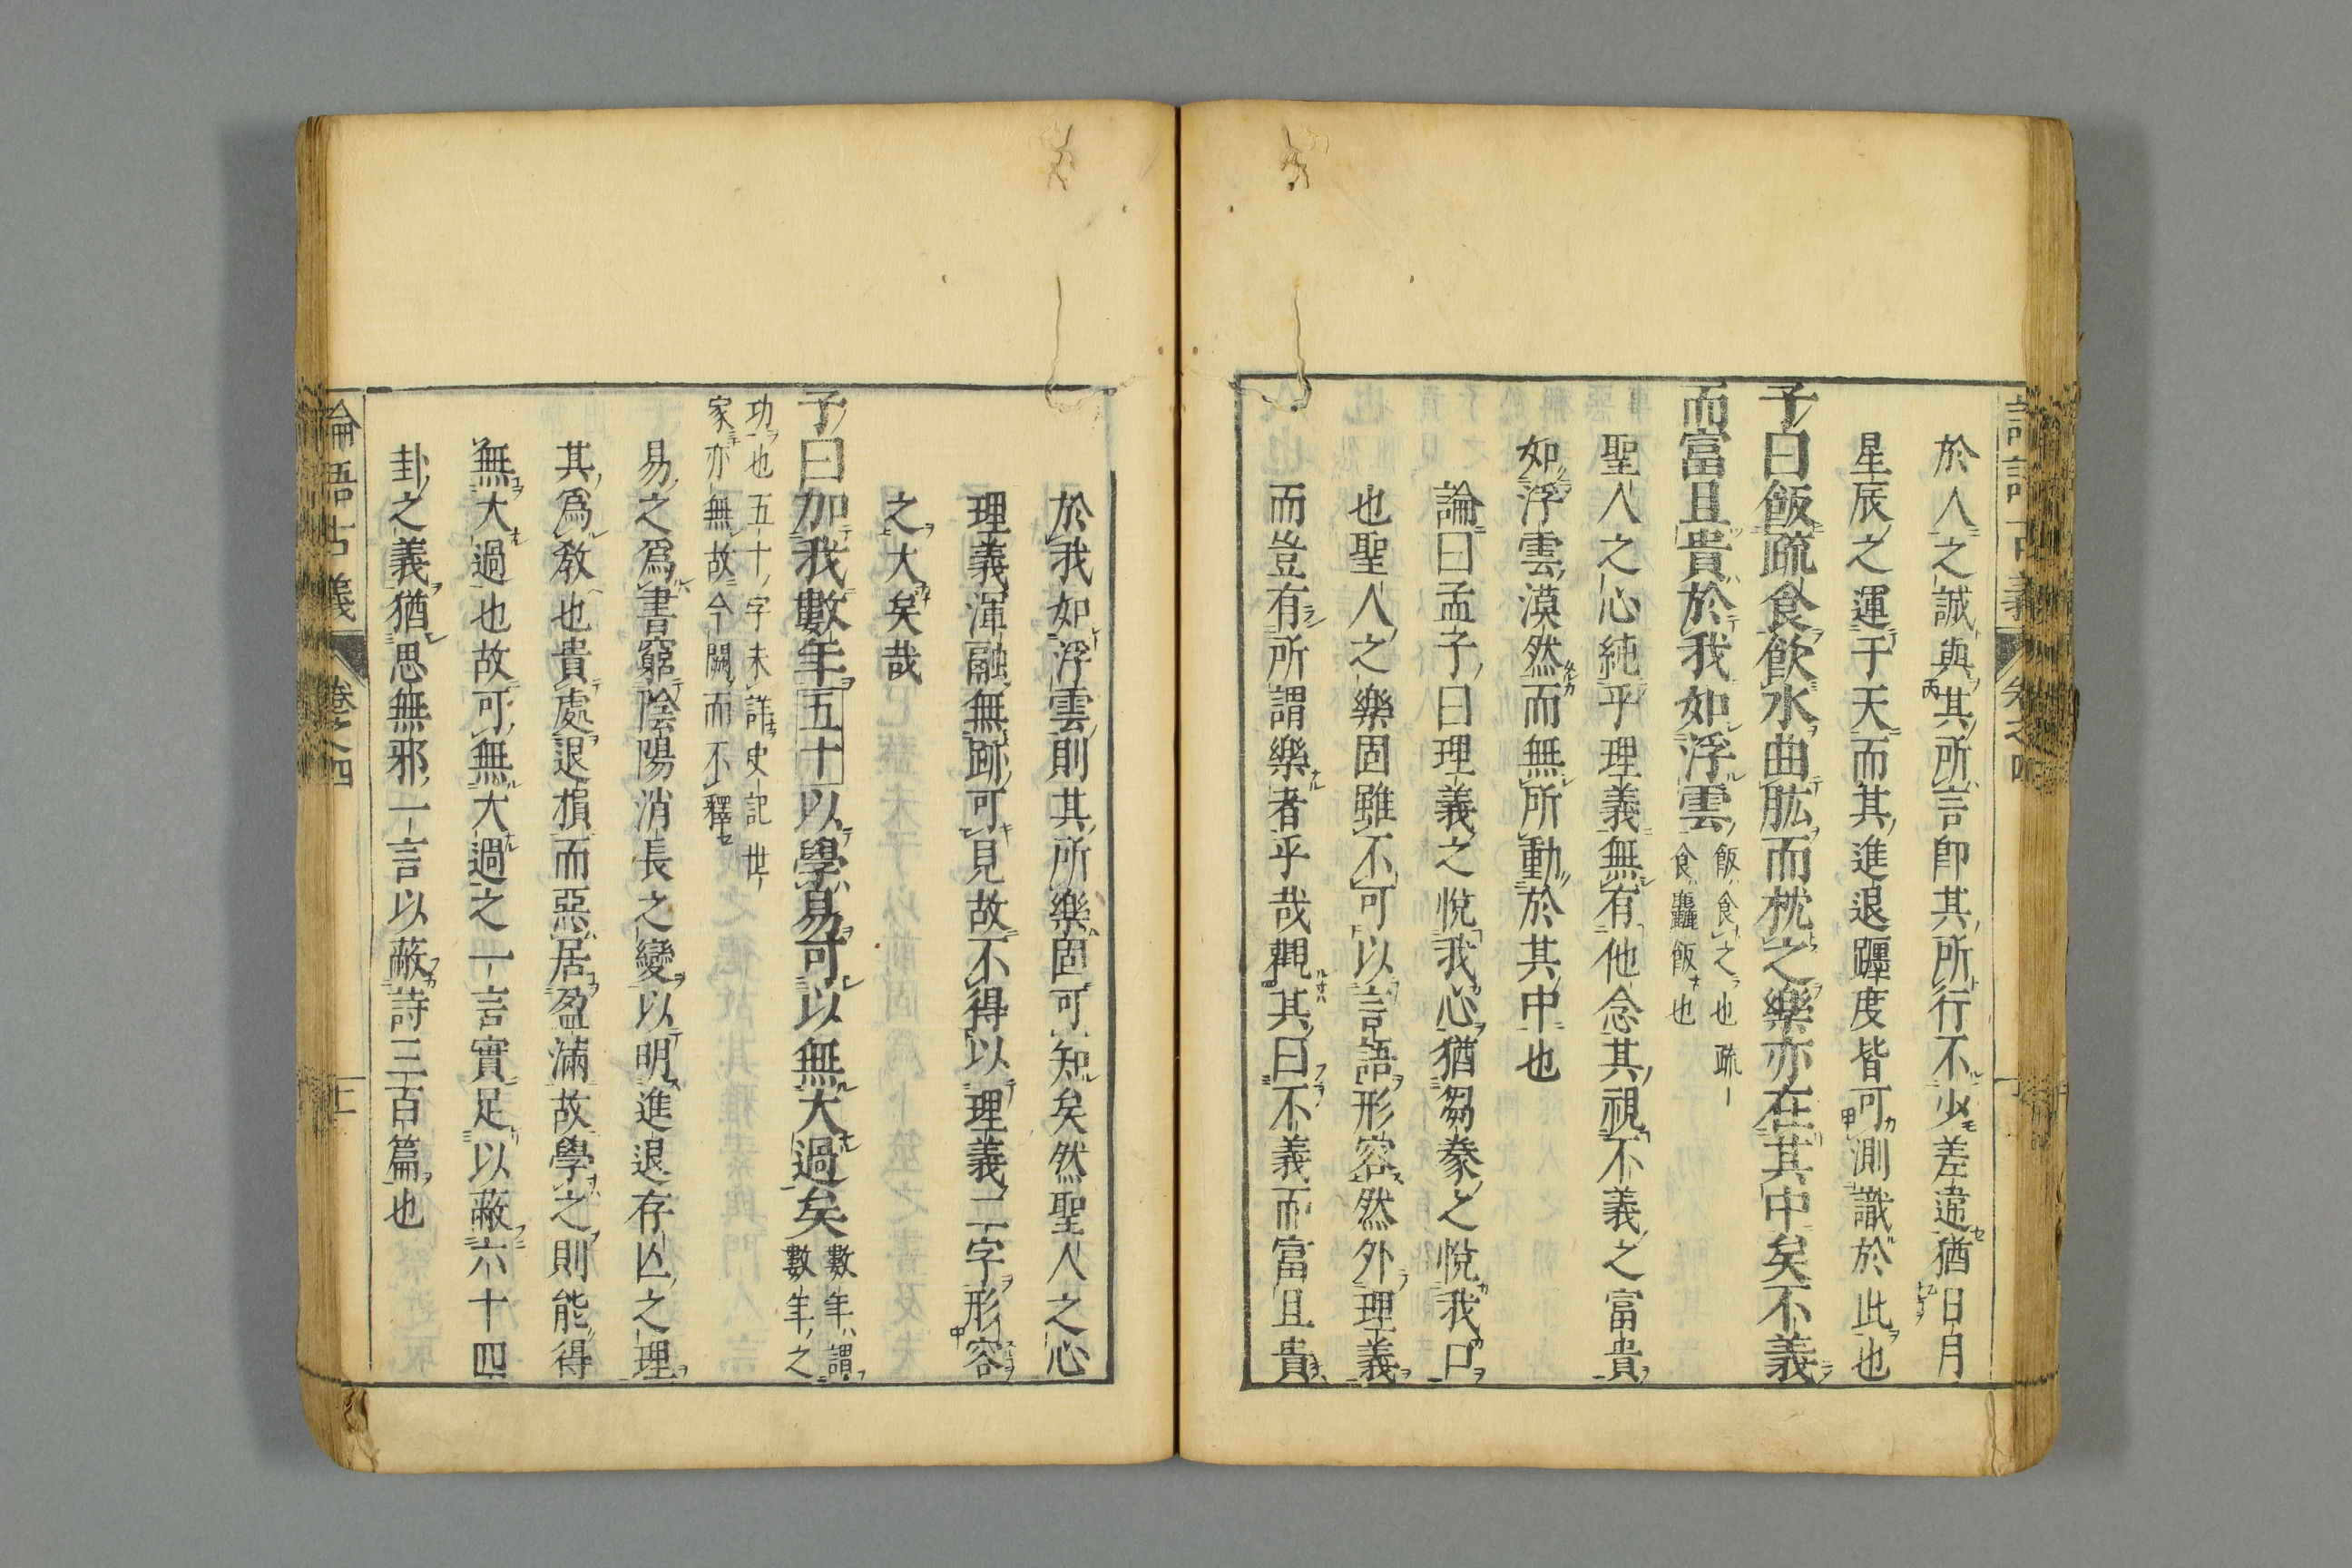 於人之誠與其所言卽其所行不少差違猶日月
星辰之運于天而其進退躔度皆可測識於此也
子曰飯疏食飮水曲肱而枕之樂亦在其中矣不義
而富且貴於我如浮雲
飯食之也疏
食麤飯也
聖人之心純乎理義無有他念其視不義之富貴
如浮雲漠然而無所動於其中也
論曰孟子曰理義之悅我心猶芻豢之悅我口
也聖人之樂固雖不可以言語形容然外理義
而豈有所謂樂者乎哉觀其曰不義而富且貴
於我如浮雲則其所樂固可知矣然聖人之心
理義渾融無跡可見故不得以理義二字形容
之大矣哉
子曰加我數年五十以學易可以無大過矣
數年謂
數年之
功也五十字未詳史記世
家亦無故今闕而不釋
易之爲書窮陰陽消長之變以明進退存亡之理
其爲敎也貴處退損而惡居盈滿故學之則能得
無大過也故可無大過之一言實足以蔽六十四
卦之義猶思無邪一言以蔽詩三百篇也
論語古義 卷之四 十一